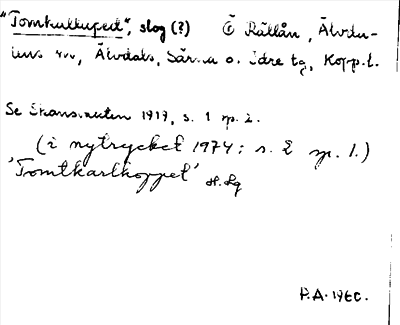 "Tomkulkupet", slog (?) Ö Rällån, Älvda-
lens svv, Älvdals, Särna o. Idre tg, Kopp. l.
Se Skansvakten 1919, s. 1 sp. 2.
(i nytrycket 1974: s. 2 sp. 1.)
'Tomtkarlkoppet' H. Lg
P.A. 1960.